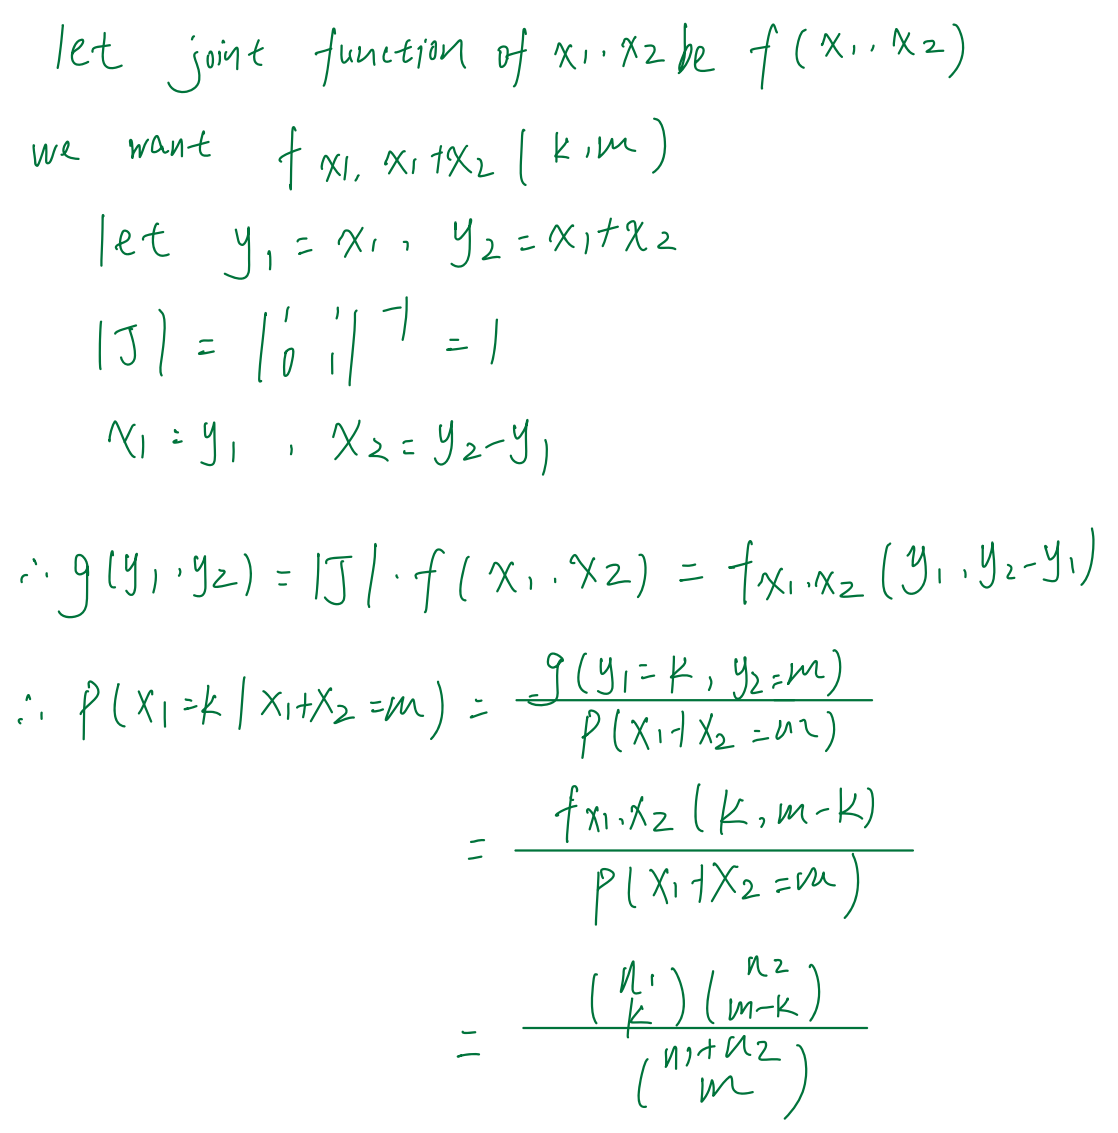 let joint function of x₁, x₂ be f(x₁, x₂)
we want f x₁, x₁+x₂ (k, m)
let y₁ = x₁, y₂ = x₁+x₂
|J| = |1 1; 0 1|⁻¹ = 1
x₁ = y₁, x₂ = y₂-y₁
∴ g(y₁, y₂) = |J| · f(x₁, x₂) = f x₁, x₂ (y₁, y₂-y₁)
∴ P(x₁=k | x₁+x₂=m) = g(y₁=k, y₂=m) / P(x₁+x₂=m)
= f x₁, x₂ (k, m-k) / P(x₁+x₂=m)
= (n₁ k)(n₂ m-k) / (n₁+n₂ m)